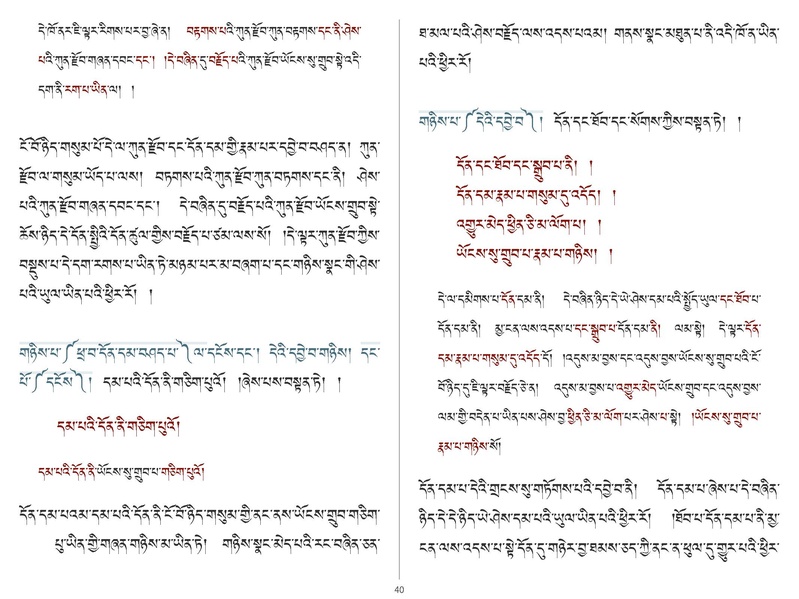 དེ་ཁོ་ནར་ཇི་ལྟར་རིགས་པར་བྱ་ཞེ་ན། བརྟགས་པའི་ཀུན་རྫོབ་ཀུན་བརྟགས་དང་ནི་ཤེས་
པའི་ཀུན་རྫོབ་གཞན་དབང་དང་། །དེ་བཞིན་དུ་བརྗོད་པའི་ཀུན་རྫོབ་ཡོངས་སུ་གྲུབ་སྟེ་འདི་
དག་ནི་རགས་པ་ཡིན་ལ། །
ངོ་བོ་ཉིད་གསུམ་པོ་དེ་ལ་ཀུན་རྫོབ་དང་དོན་དམ་གྱི་རྣམ་པར་དབྱེ་བ་བཤད་ན། ཀུན་
རྫོབ་ལ་གསུམ་ཡོད་པ་ལས། བཏགས་པའི་ཀུན་རྫོབ་ཀུན་བཏགས་དང་ནི། ཤེས་
པའི་ཀུན་རྫོབ་གཞན་དབང་དང་། དེ་བཞིན་དུ་བརྗོད་པའི་ཀུན་རྫོབ་ཡོངས་གྲུབ་སྟེ་
ཆོས་ཉིད་དེ་དོན་སྤྱིའི་དོན་ཚུལ་གྱིས་བརྗོད་པ་ཙམ་ལས་སོ། །དེ་ལྟར་ཀུན་རྫོབ་ཀྱིས་
བསྡུས་པ་དེ་དག་རགས་པ་ཡིན་ཏེ་མཉམ་པར་མ་བཞག་པ་དང་གཉིས་སྣང་གི་ཤེས་
པའི་ཡུལ་ཡིན་པའི་ཕྱིར་རོ། །
གཉིས་པ་༼ཕྲ་བ་དོན་དམ་བཤད་པ་༽ལ་དངོས་དང་། དེའི་དབྱེ་བ་གཉིས། དང་
པོ་༼དངོས་༽། དམ་པའི་དོན་ནི་གཅིག་པུའོ། །ཞེས་པས་བསྟན་ཏེ། །
དམ་པའི་དོན་ནི་གཅིག་པུའོ།
དམ་པའི་དོན་ནི་ཡོངས་སུ་གྲུབ་པ་གཅིག་པུའོ།
དོན་དམ་པའམ་དམ་པའི་དོན་ནི་ངོ་བོ་ཉིད་གསུམ་གྱི་ནང་ནས་ཡོངས་གྲུབ་གཅིག་
པུ་ཡིན་གྱི་གཞན་གཉིས་མ་ཡིན་ཏེ། གཉིས་སྣང་མེད་པའི་རང་བཞིན་ཅན་
ཐ་མལ་པའི་ཤེས་བརྗོད་ལས་འདས་པའམ། གནས་སྣང་མཐུན་པ་ནི་འདི་ཁོ་ན་ཡིན་
པའི་ཕྱིར་རོ།
གཉིས་པ་༼དེའི་དབྱེ་བ་༽། དོན་དང་ཐོབ་དང་སོགས་ཀྱིས་བསྟན་ཏེ། །
དོན་དང་ཐོབ་དང་སྒྲུབ་པ་ནི། །
དོན་དམ་རྣམ་པ་གསུམ་དུ་འདོད། །
འགྱུར་མེད་ཕྱིན་ཅི་མ་ལོག་པ། །
ཡོངས་སུ་གྲུབ་པ་རྣམ་པ་གཉིས། །
དེ་ལ་དམིགས་པ་དོན་དམ་ནི། དེ་བཞིན་ཉིད་དེ་ཡེ་ཤེས་དམ་པའི་སྤྱོད་ཡུལ་དང་ཐོབ་པ་
དོན་དམ་ནི། མྱ་ངན་ལས་འདས་པ་དང་སྒྲུབ་པ་དོན་དམ་ནི། ལམ་སྟེ། དེ་ལྟར་དོན་
དམ་རྣམ་པ་གསུམ་དུ་འདོད་དོ། །འདུས་མ་བྱས་དང་འདུས་བྱས་ཡོངས་སུ་གྲུབ་པའི་ངོ་
བོ་ཉིད་དུ་ཇི་ལྟར་བརྗོད་ཅེ་ན། འདུས་མ་བྱས་པ་འགྱུར་མེད་ཡོངས་གྲུབ་དང་འདུས་བྱས་
ལམ་གྱི་བདེན་པ་ཡིན་པས་ཤེས་བྱ་ཕྱིན་ཅི་མ་ལོག་པར་ཤེས་པ་སྟེ། །ཡོངས་སུ་གྲུབ་པ་
རྣམ་པ་གཉིས་སོ།
དོན་དམ་པ་དེའི་གྲངས་སུ་གཏོགས་པའི་དབྱེ་བ་ནི། དོན་དམ་པ་ཞེས་པ་དེ་བཞིན་
ཉིད་དེ་དེ་ཉིད་ཡེ་ཤེས་དམ་པའི་ཡུལ་ཡིན་པའི་ཕྱིར་རོ། །ཐོབ་པ་དོན་དམ་པ་ནི་མྱ་
ངན་ལས་འདས་པ་སྟེ་དོན་དུ་གཉེར་བྱ་ཐམས་ཅད་ཀྱི་ནང་ན་ཕུལ་དུ་གྱུར་པའི་ཕྱིར་
40